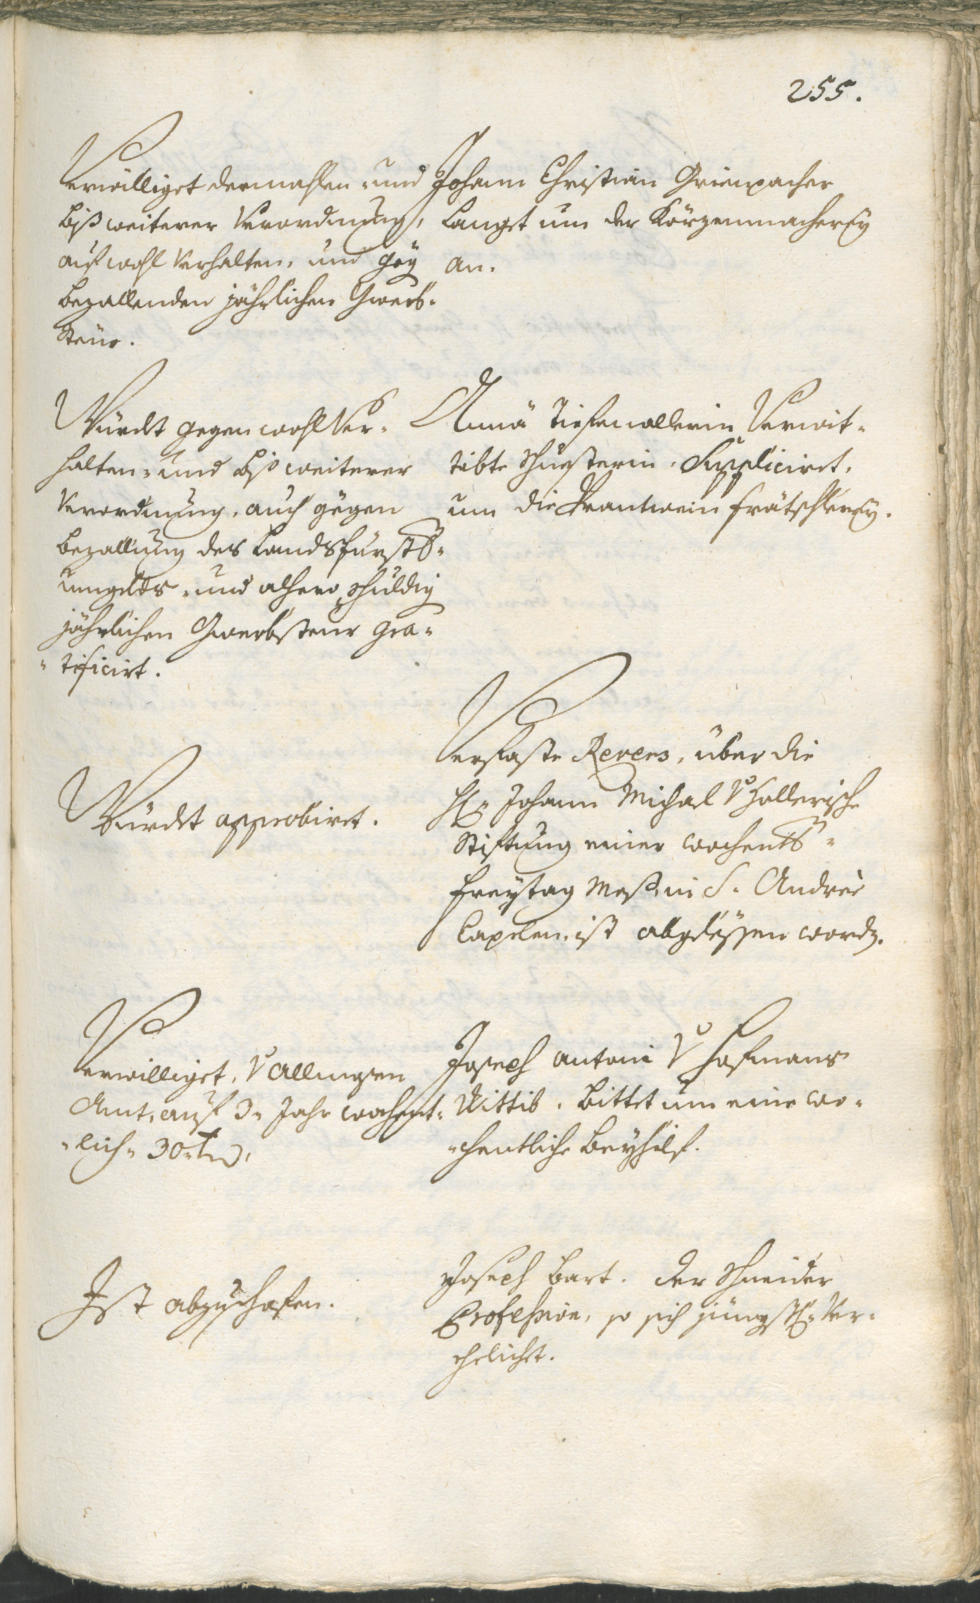 255.
Verwilliget dermahlen, und
biß weiterer Verordnung,
auf wohl Verhalten, und
bezallenden jährlichen Gwerb-
steur.
Johann Christian Grienpacher
Langet um der Körzenmacherey
an.
Würdt gegen wohl Ver-
halten, und biß weiterer
Verordnung, auch gegen
bezallung des Landsfürstl:
umgelts, und alhero schuldig
jährlichen Gwerbsteur gra-
tificirt.
Anna Tiefenallerin Verwit-
tibte Schuesterin, Suppliciret,
um die Brantwein frätschlerey.
Würdt approbiret.
Verfaste Revers, über die
H: Johann Michael V Hallerische
Stiftung einer wochentl:
freytag Meß in S. Andree
Capelen, ist abgelesen word.
Verwilliget, V Allmosen
Amt, auf 3 Jahr wochent-
lich 30
Joseph Antoni V Hofmans
Wittib, Bittet um eine wo-
chentliche Beyhilf.
Ist abzuschafen.
Joseph Bart. der Schneider
Profession, so sich jüngsth: Ver-
ehelichet.